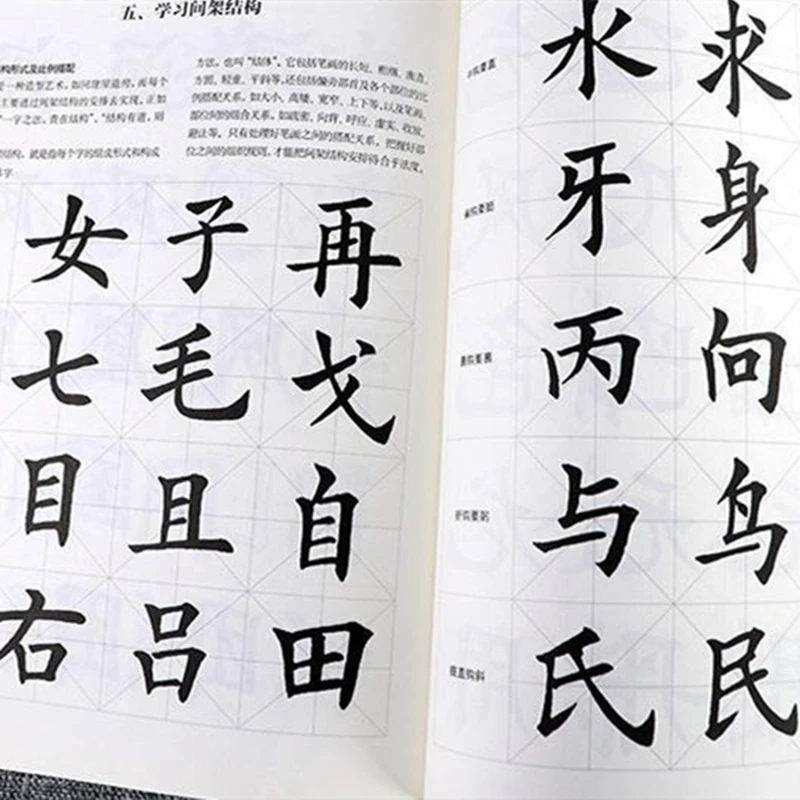 五、学习间架结构
构形式及比例搭配
是一种造型艺术，如同建屋造房，而每个
主要通过间架结构的安排去实现，正如
“一字之法，贵在结构”，“结构有道，则
结构，就是指每个字的组成形式和构成
字
方法，也叫“结体”。它包括笔画的长短、粗细、曲直、
方圆、轻重、平斜等，还包括偏旁部首及各个部位的比
例搭配关系，如大小、高矮、宽窄、上下等，以及笔画、
部位间的组合关系，如疏密、向背、呼应、虚实、收放、
避让等。只有处理好笔画之间的搭配关系，把握好部
位之间的组织规则，才能把间架结构安排得合乎法度。
女 子 再
七 毛 戈
目 且 自
右 吕 田
水 求
牙 身
丙 向
与 鸟
氏 民